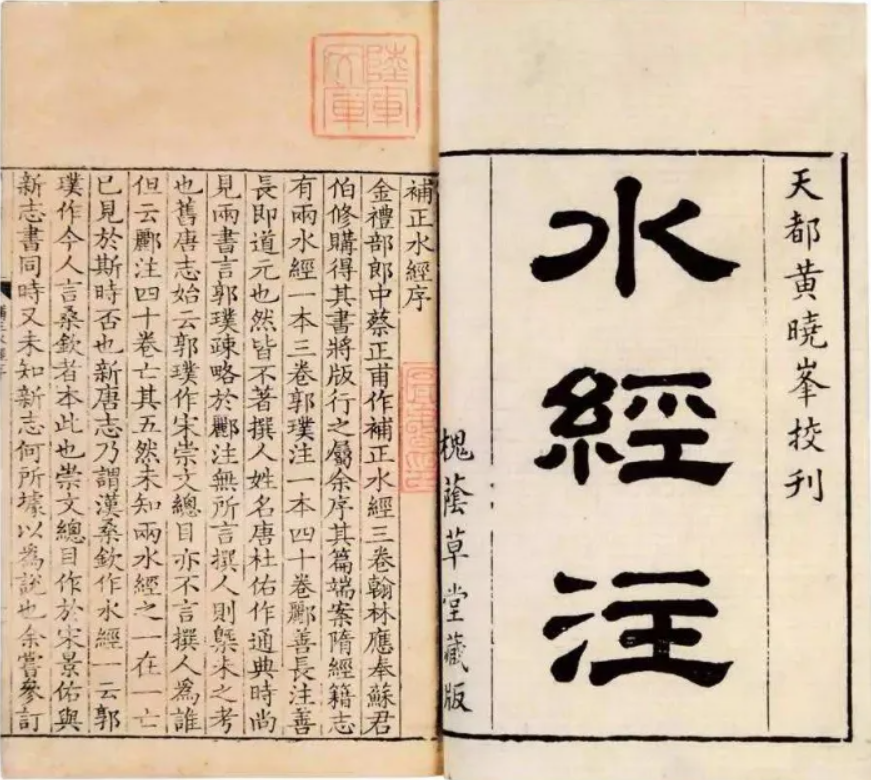 天都黄曉峯挍刋
水經注
槐蔭草堂藏版
陸軍
文庫
補正水經序
金禮部郎中蔡正甫作補正水經三卷翰林應奉蘇君
伯修購得其書將版行之屬余序其篇端案隋經籍志
有兩水經一本三卷郭璞注一本四十卷酈善長注善
長即道元也然皆不著撰人姓名唐杜佑作通典時尚
見兩書言郭璞疎略於酈注無所言撰人則槩未之考
也舊唐志始云郭璞作宋崇文總目亦不言撰人為誰
但云酈注四十卷亡其五然未知兩水經之一在一亡
已見於斯時否也新唐志乃謂漢桑欽作水經一云郭
璞作今人言桑欽者本此也崇文總目作於宋景佑與
新志書同時又未知新志何所據以為說也余嘗參訂